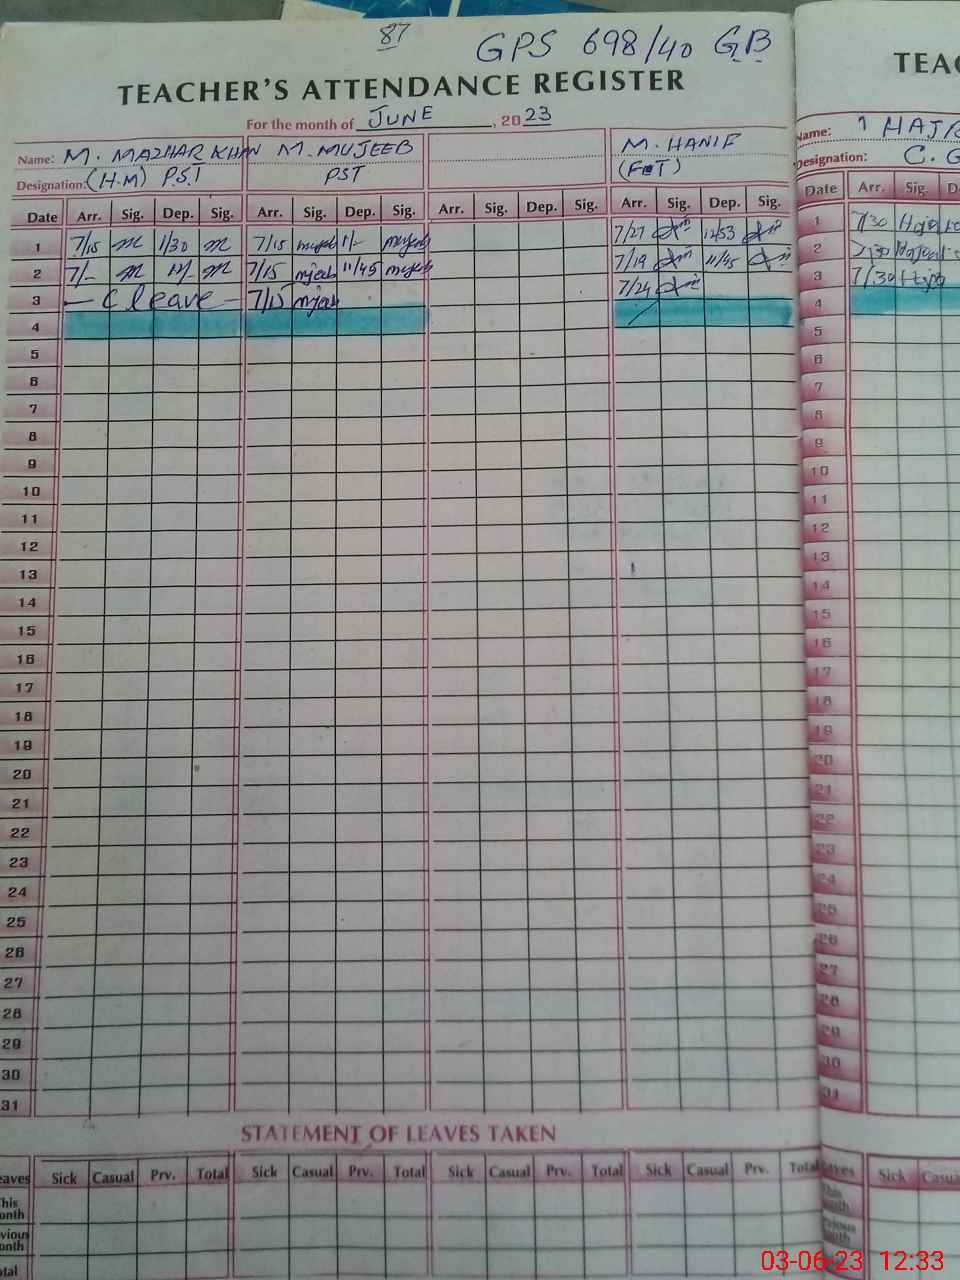 87
GPS 698/40 GB
TEACHER'S ATTENDANCE REGISTER
For the month of JUNE, 2023
Name: M. MAZHAR KHAN M. MUJEEB M. HANIF
Designation: (H.M) P.S.T PST
Date Arr. Sig. Dep. Sig. Arr. Sig. Dep. Sig. Arr. Sig. Dep. Sig. Arr. Sig. Dep. Sig.
1 7/15 m 1/30 m 7/15 1/- 7/27 12/53
2 7/- m m 7/15 11/45 7/19 11/45
3 C leave 7/15 7/24
4
5
6
7
8
9
10
11
12
13
14
15
16
17
18
19
20
21
22
23
24
25
26
27
28
29
30
31
STATEMENT OF LEAVES TAKEN
eaves Sick Casual Prv. Total Sick Casual Prv. Total Sick Casual Prv. Total Sick Casual Prv. Total
his
onth
vious
onth
tal
TEAC
Name: HAJR
Designation: C. G
Date Arr. Sig. D
1 7/30
2 7/30
3 7/30
4
5
6
7
8
9
10
11
12
13
14
15
16
17
18
19
20
21
22
23
24
25
26
27
28
29
30
31
eaves Sick Casua
03-06-23 12:33